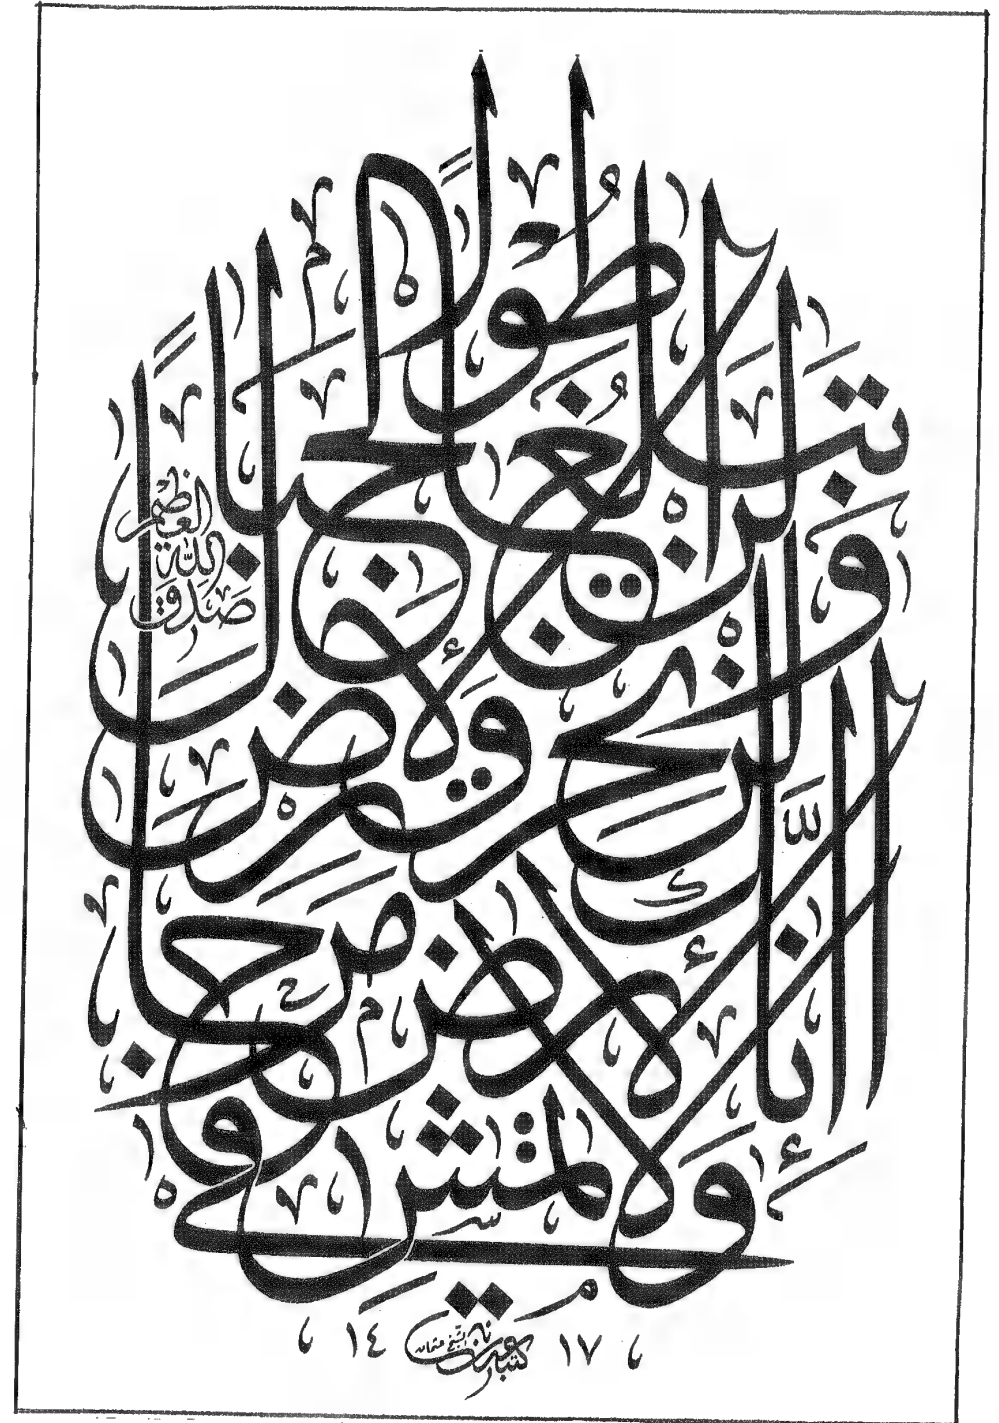 وَلَا تَمْشِ فِي الْأَرْضِ مَرَحًا
إِنَّكَ لَنْ تَخْرِقَ الْأَرْضَ
وَلَنْ تَبْلُغَ الْجِبَالَ طُولًا
صَدَقَ اللّٰه العظيم
كتبه عدنان الشيخ عثمان
١٤ ١٧